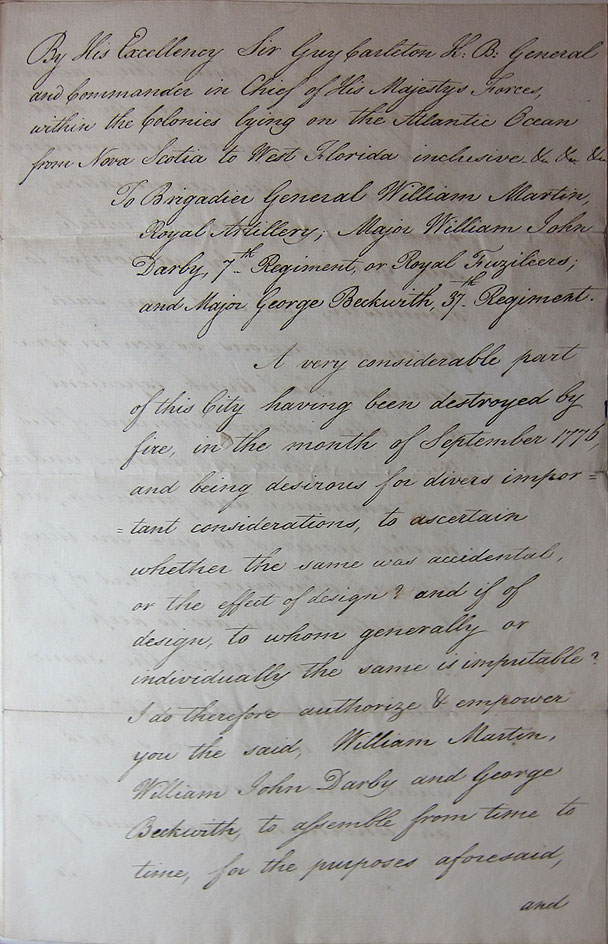 By His Excellency Sir Guy Carleton K: B: General
and Commander in Chief of His Majestys Forces,
within the Colonies lying on the Atlantic Ocean
from Nova Scotia to West Florida inclusive &c &c &c
To Brigadier General William Martin,
Royal Artillery; Major William John
Darby, 7th Regiment, or Royal Fuzileers;
and Major George Beckwith, 37th Regiment.
A very considerable part
of this City having been destroyed by
fire, in the month of September 1776
and being desirous for divers impor=
=tant considerations, to ascertain
whether the same was accidental,
or the effect of design? and if of
design, to whom generally or
individually the same is imputable?
I do therefore authorize & empower
you the said, William Martin,
William John Darby and George
Beckwith, to assemble from time to
time, for the purposes aforesaid,
and